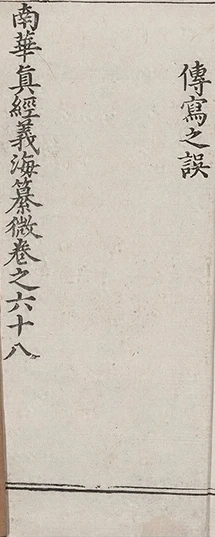 傳寫之誤
南華真經義海纂微卷之六十八